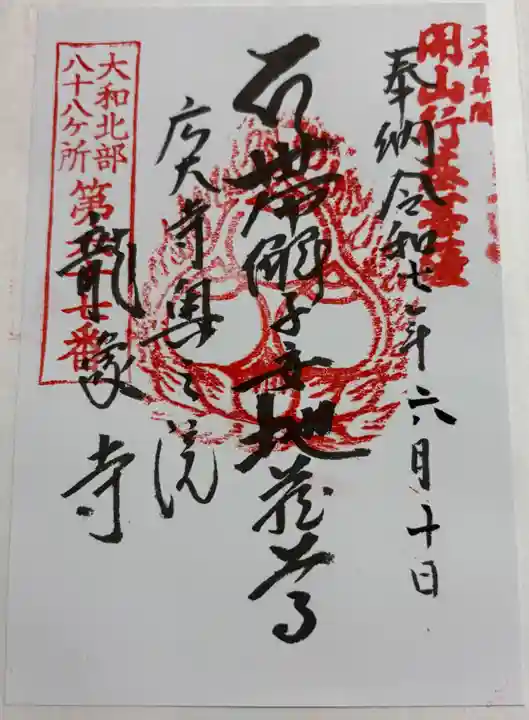 天平年間
開山行基菩薩
奉納令和七年六月十日
石帯解子安地蔵尊
広大寺奥之院
龍象寺
大和北部
八十八ヶ所第
番